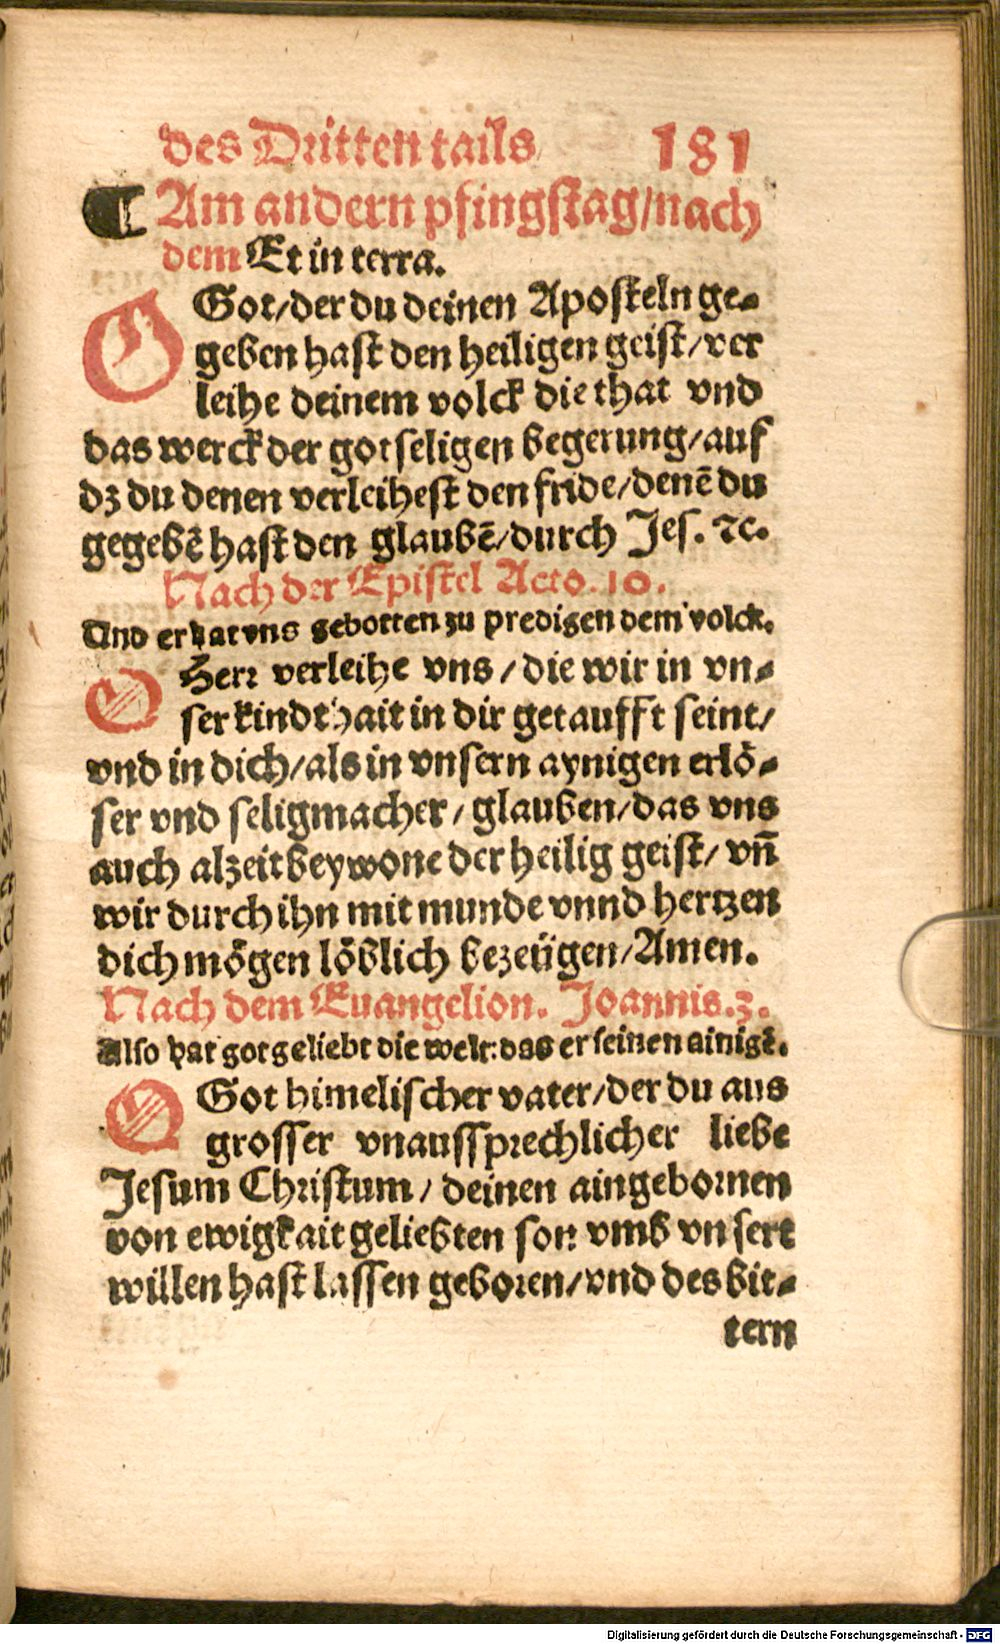 des Dritten tails 181
¶ Am andern pfingstag/nach
dem Et in terra.
O Got/der du deinen Aposteln ge-
geben hast den heiligen geist/ver
leihe deinem volck die that vnd
das werck der gotseligen begerung/auf
dz du denen verleihest den fride/denē du
gegebē hast den glaubē/durch Jes. ꝛc.
Nach der Epistel Acto. 10.
Und er hat vns gebotten zu predigen dem volck.
O Herr verleihe vns/die wir in vn-
ser kindthait in dir getaufft seint/
vnd in dich/als in vnsern aynigen erlö-
ser vnd seligmacher/glauben/das vns
auch alzeit beywone der heilig geist/vn̄
wir durch ihn mit munde vnnd hertzen
dich mögen löblich bezeügen/Amen.
Nach dem Euangelion. Joannis.3.
Also hat got geliebt die welt: das er seinen ainigē.
O Got himelischer vater/der du aus
grosser vnaussprechlicher liebe
Jesum Christum/deinen aingebornen
von ewigkait geliebten son vmb vnsert
willen hast lassen geboren/vnd des bit-
tern
Digitalisierung gefördert durch die Deutsche Forschungsgemeinschaft - DFG